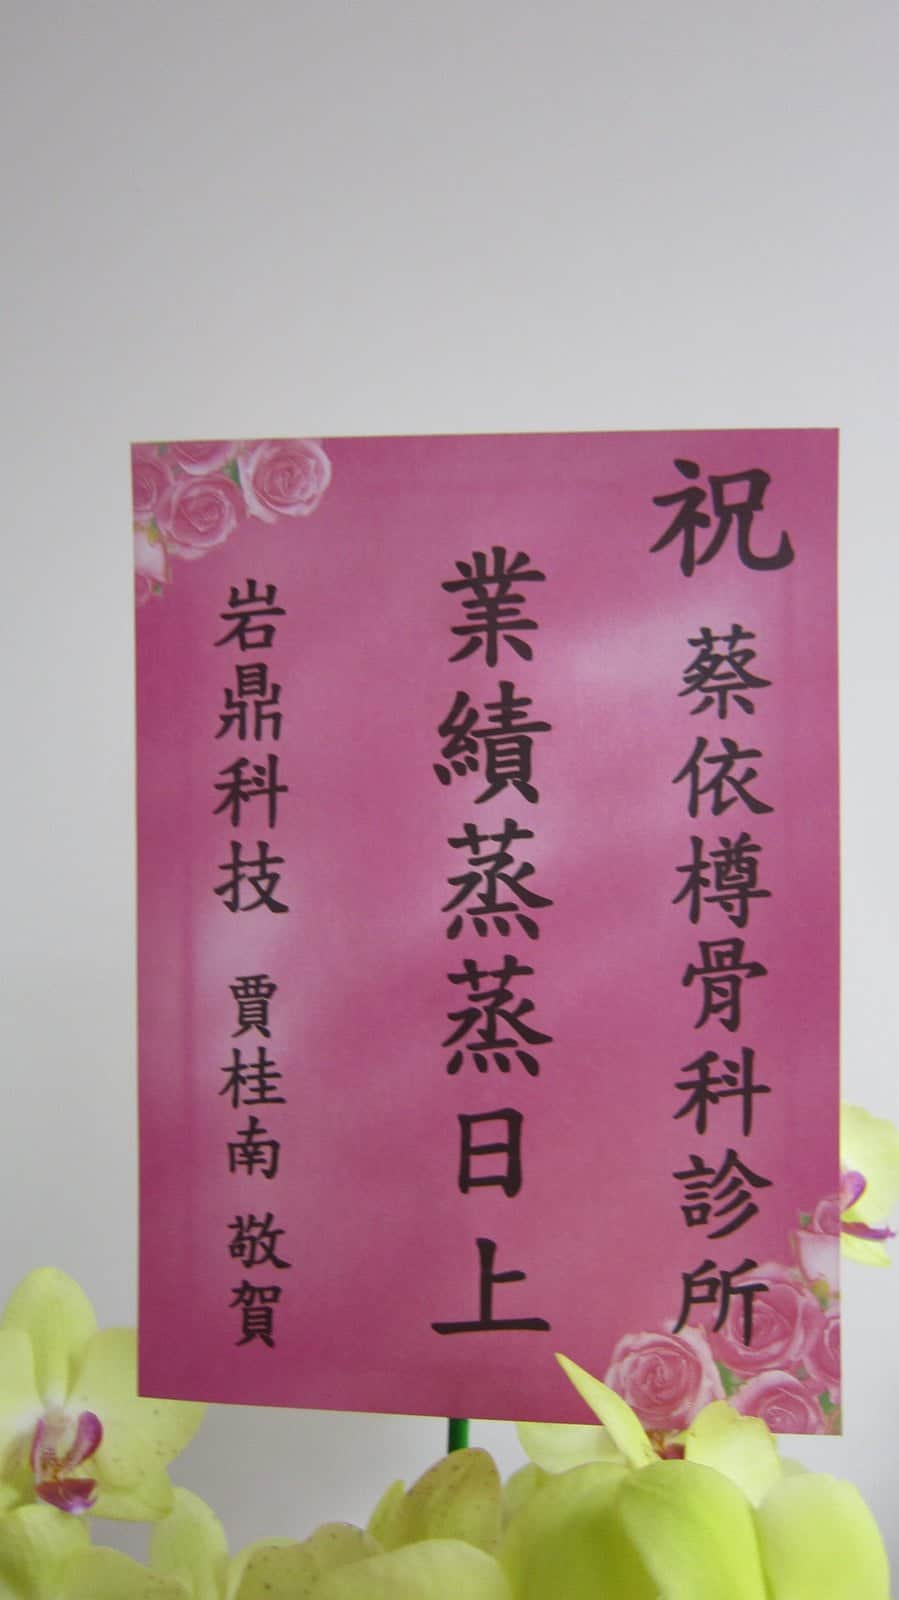 祝 蔡依樽骨科診所
業績蒸蒸日上
岩鼎科技 賈桂南 敬賀